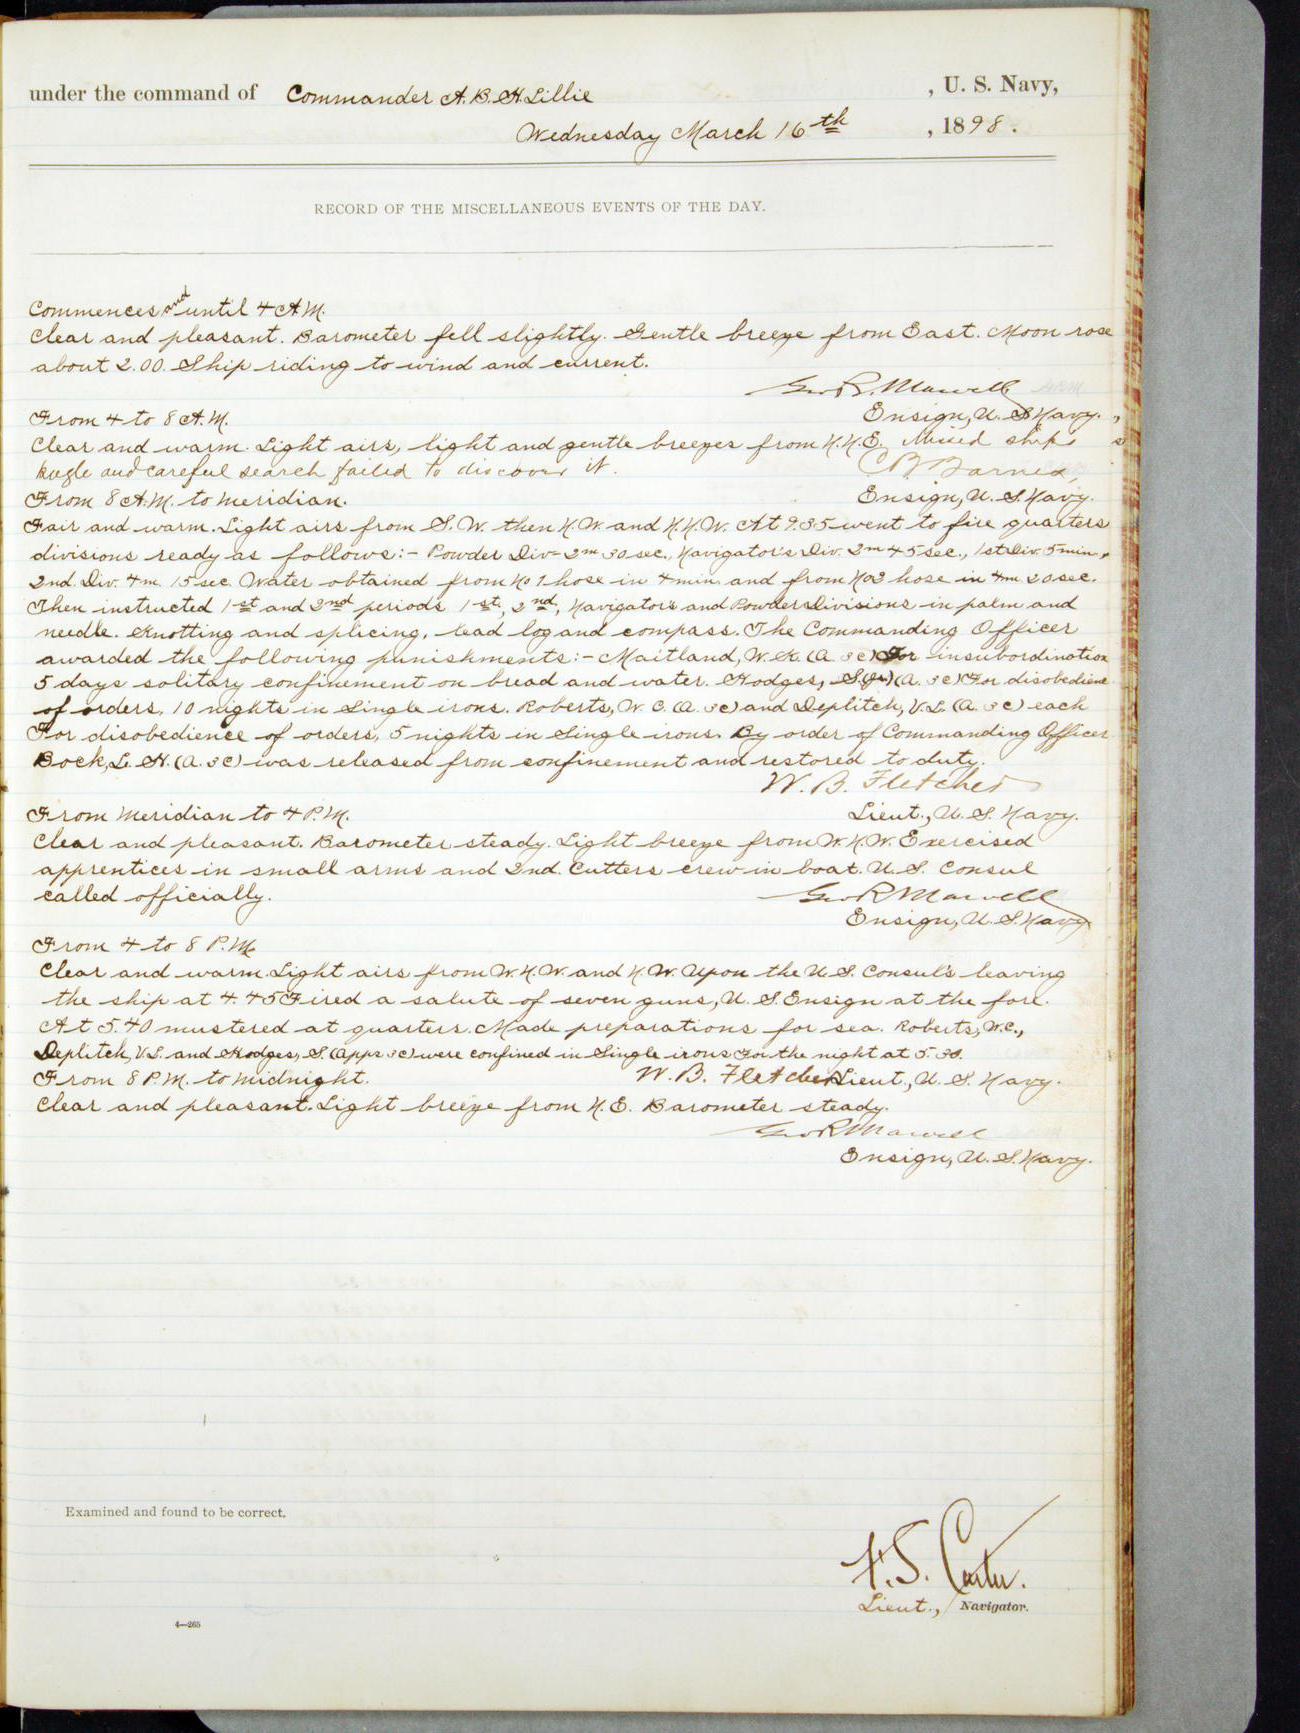 under the command of Commander A. B. H. Lillie , U. S. Navy,
Wednesday March 16th , 1898.
RECORD OF THE MISCELLANEOUS EVENTS OF THE DAY.
Commences and until 4 A.M.
Clear and pleasant. Barometer fell slightly. Gentle breeze from East. Moon rose
about 2.00. Ship riding to wind and current.
Geo R. Marvell
Ensign, U. S. Navy.
From 4 to 8 A.M.
Clear and warm. Light airs, light and gentle breezes from N.N.E. Missed ship's
bugle and careful search failed to discover it.
C B Barnes,
From 8 A.M. to meridian.
Ensign, U. S. Navy.
Fair and warm. Light airs from S.W. then N.W. and N.N.W. At 9.35 went to fire quarters
divisions ready as follows:- Powder Div- 2m 30 sec., Navigator's Div. 2m 45 sec., 1st Div. 5 min.,
2nd. Div. 4m. 15 sec. Water obtained from No 1 hose in 4 min. and from No 2 hose in 4m 20 sec.
Then instructed 1st and 2nd periods 1st, 2nd, Navigator's and Powder Divisions in palm and
needle. Knotting and splicing, lead log and compass. The Commanding Officer
awarded the following punishments:- Maitland, W. K. (A. 3c) For insubordination
5 days solitary confinement on bread and water. Hodges, S. (A. 3c) For disobedience
of orders, 10 nights in Single irons. Roberts, W. C. (A. 3c) and Deplitch, V. L. (A. 3c) each
For disobedience of orders, 5 nights in Single irons. By order of Commanding Officer
Bock, L. H. (A. 3c) was released from confinement and restored to duty.
W. B. Fletcher
From Meridian to 4 P.M.
Lieut., U. S. Navy.
Clear and pleasant. Barometer steady. Light breeze from W.N.W. Exercised
apprentices in small arms and 2nd. Cutters crew in boat. U. S. Consul
called officially.
Geo R Marvell
Ensign, U. S. Navy
From 4 to 8 P.M.
Clear and warm. Light airs from W.N.W. and N.W. Upon the U.S. Consul's leaving
the ship at 4.45 Fired a salute of seven guns, U. S. Ensign at the fore.
At 5.40 mustered at quarters. Made preparations for sea. Roberts, W.C.,
Deplitch, V.L. and Hodges, S. (Apps 3c) were confined in Single irons For the night at 5.30.
W. B. Fletcher Lieut., U. S. Navy.
From 8 P.M. to midnight.
Clear and pleasant. Light breeze from N.E. Barometer steady.
Geo R Marvell
Ensign, U. S. Navy.
Examined and found to be correct.
F. S. Carter.
Lieut., Navigator.
4—265